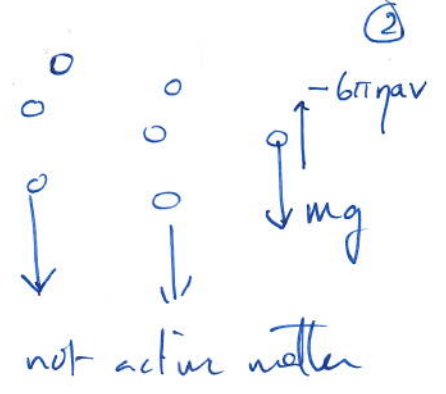 ②
-6πηav
mg
not active matter